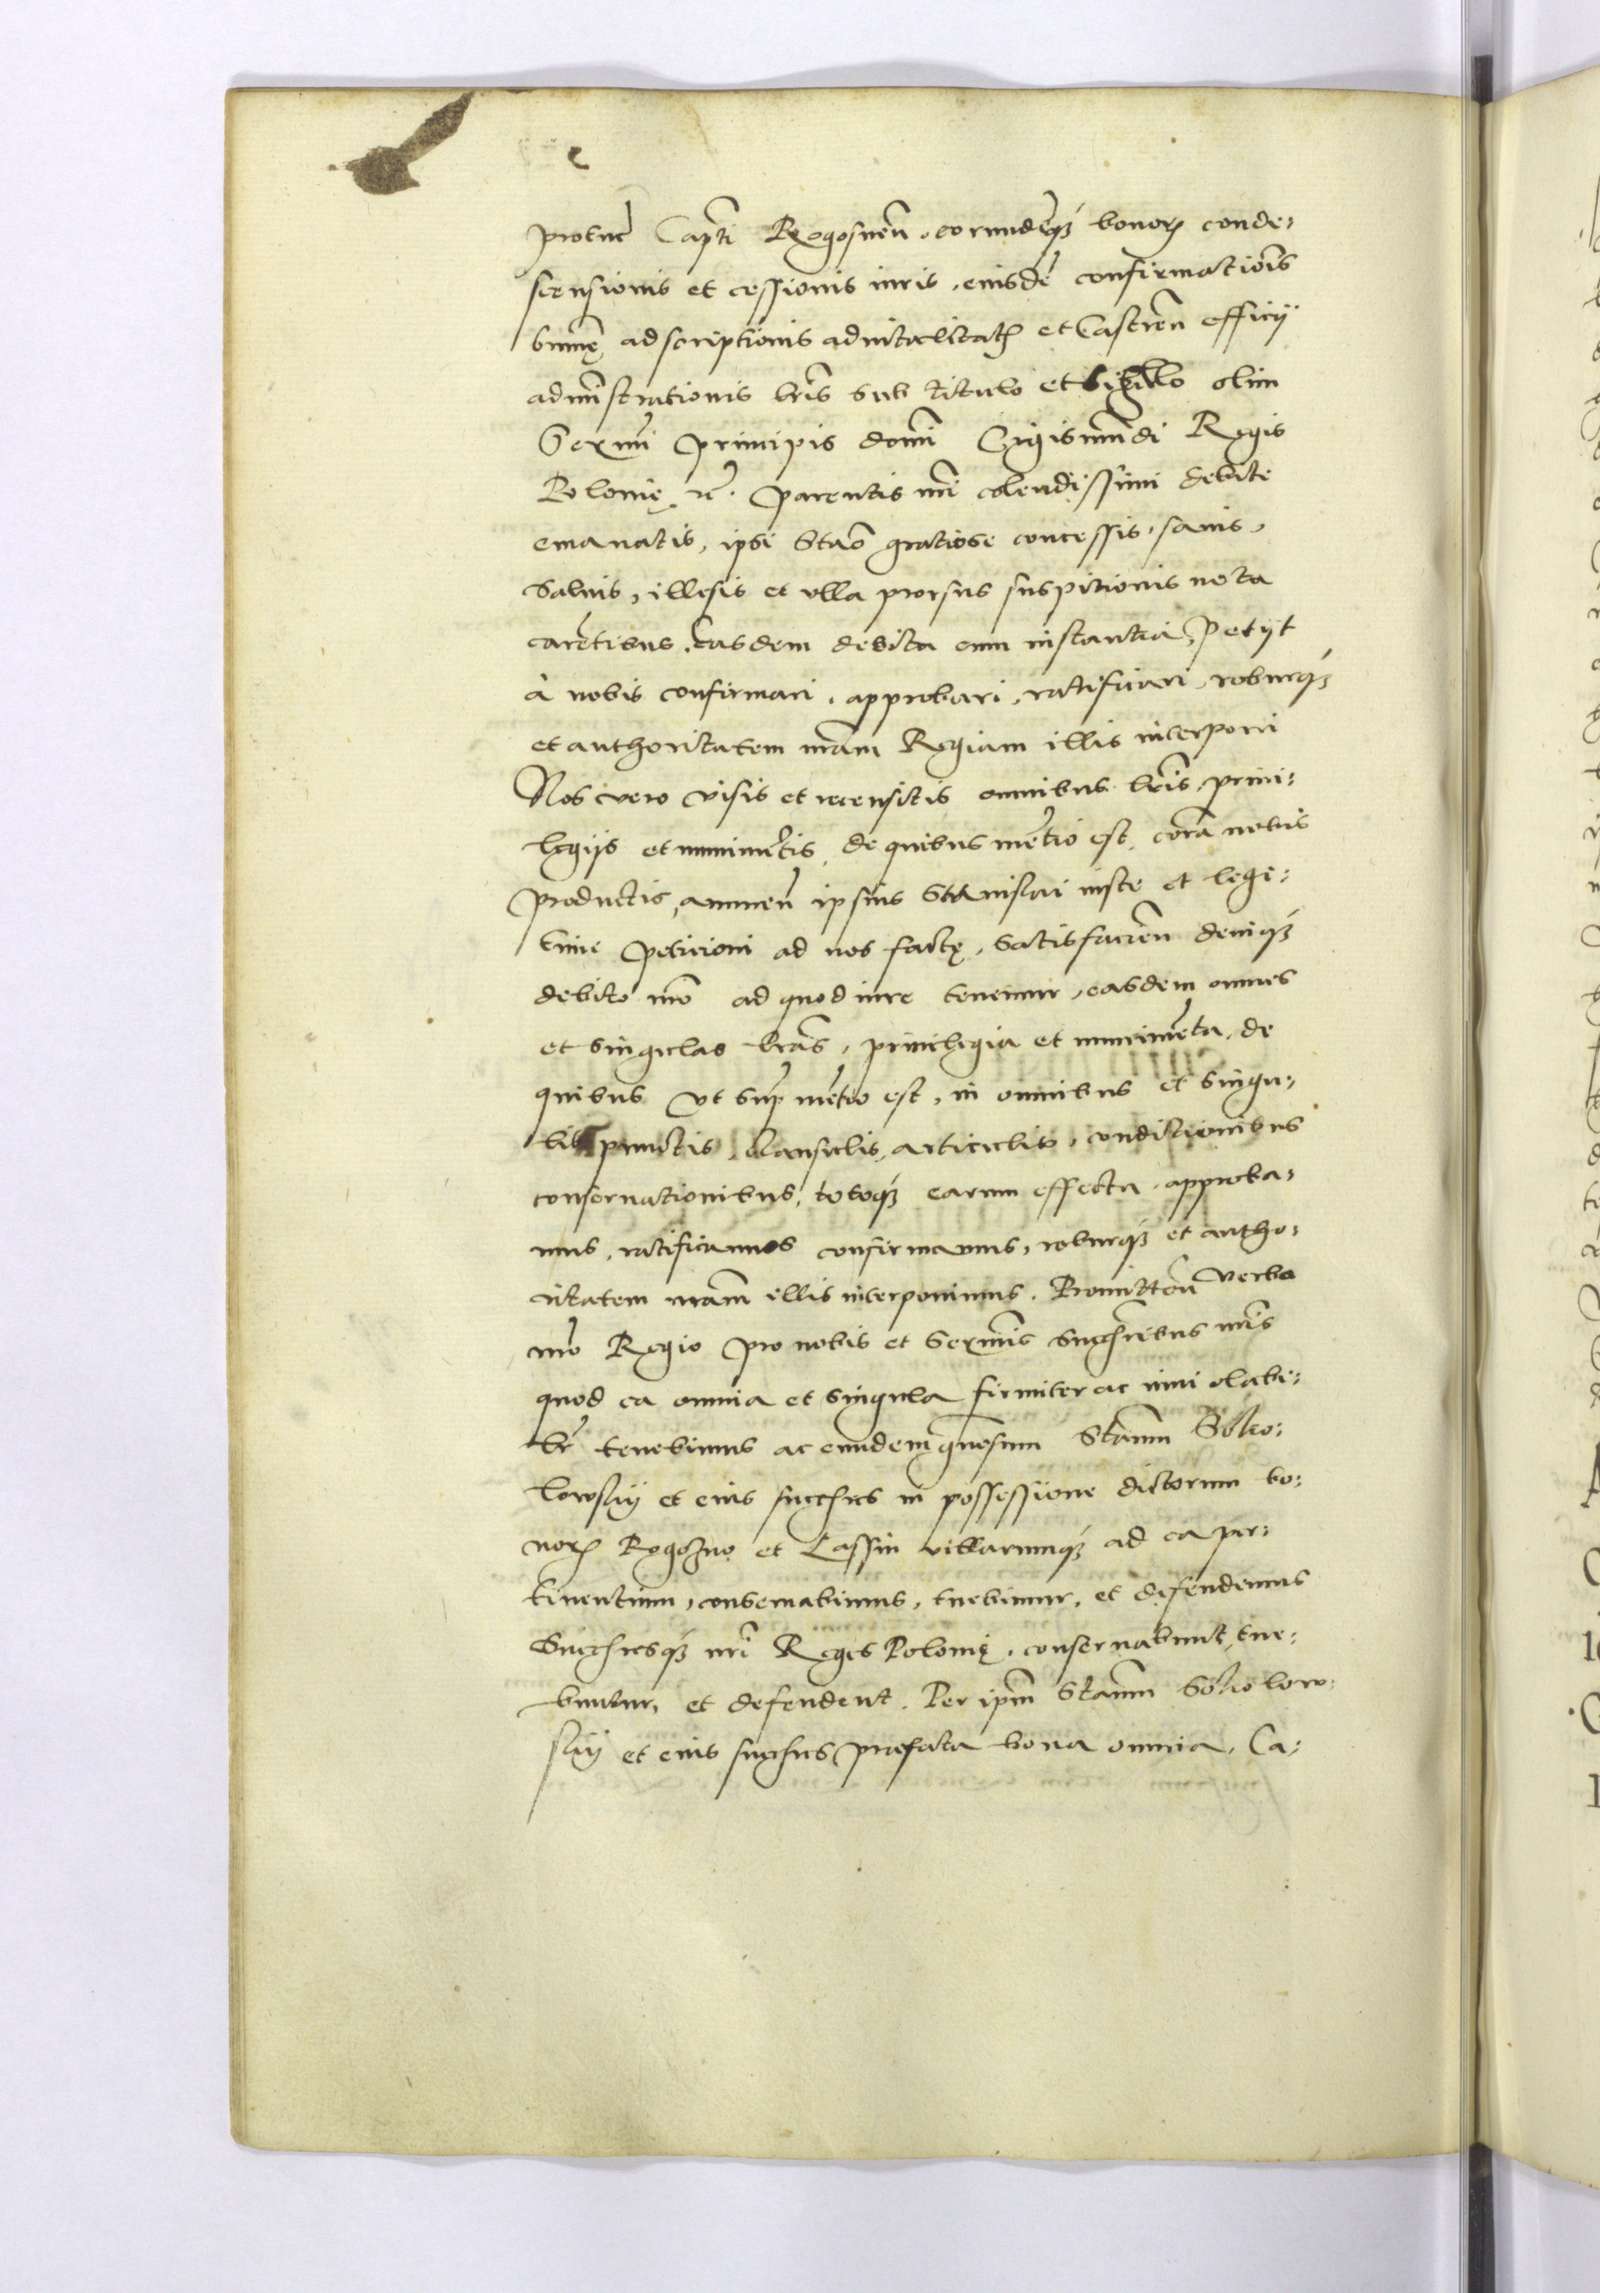 Capti Rogosnen. eorundemq; bonor conde:
scensionis et cessionis iuris, eiusde confirmationis
sumę adscriptionis advitalitate et Castren officij
administrationis lris sub titulo et sigillo olim
Sermi principis domini Sigismundi Regis
Polonię ꝛc. parentis nri colendissimi debite
emanatis, ipsi Stao gratiose concessis, sanis,
salvis, illesis et ulla prorsus suspitionis nota
caretibus. Easdem debita cum instantia petijt
à nobis confirmari, approbari, ratificari, roburq;
et authoritatem nram Regiam illis interponi
Nos vero visis et recensitis omnibus lris, privi:
legijs et munimetis, de quibus metio est, cora nobis
productis, annuen ipsius Stanislai iuste et legi:
time petitioni ad nos factę, satisfacien deniq;
debito nro ad quod iure tenemur, easdem omnes
et singulas lras, privilegia et munimeta, de
quibus ut supra metio est, in omnibus et singu:
lis punctis, clausulis, articulis, conditionibus
conservationibus, totoq; earum effectu, approba:
mus, ratificamus confirmamus, roburq; et autho:
ritatem nram illis interponimus. Promitten verbo
nro Regio pro nobis et Sermis successoribus nris
quod ea omnia et singula firmiter ac inviolabi:
lr tenebimus ac eundem gnosum Stanm Soko:
lowskij et eius successores in possessione dictorum bo:
nor Rogozno et Lassin villarumq; ad ea per:
tinentium, conservabimus, tuebimur, et defendemus
Successoresq; nri Reges Polonię, conservabunt, tue:
buntur, et defendent. Per ipm Stanm Sokolow:
skij et eius successores praefata bona omnia, Ca: